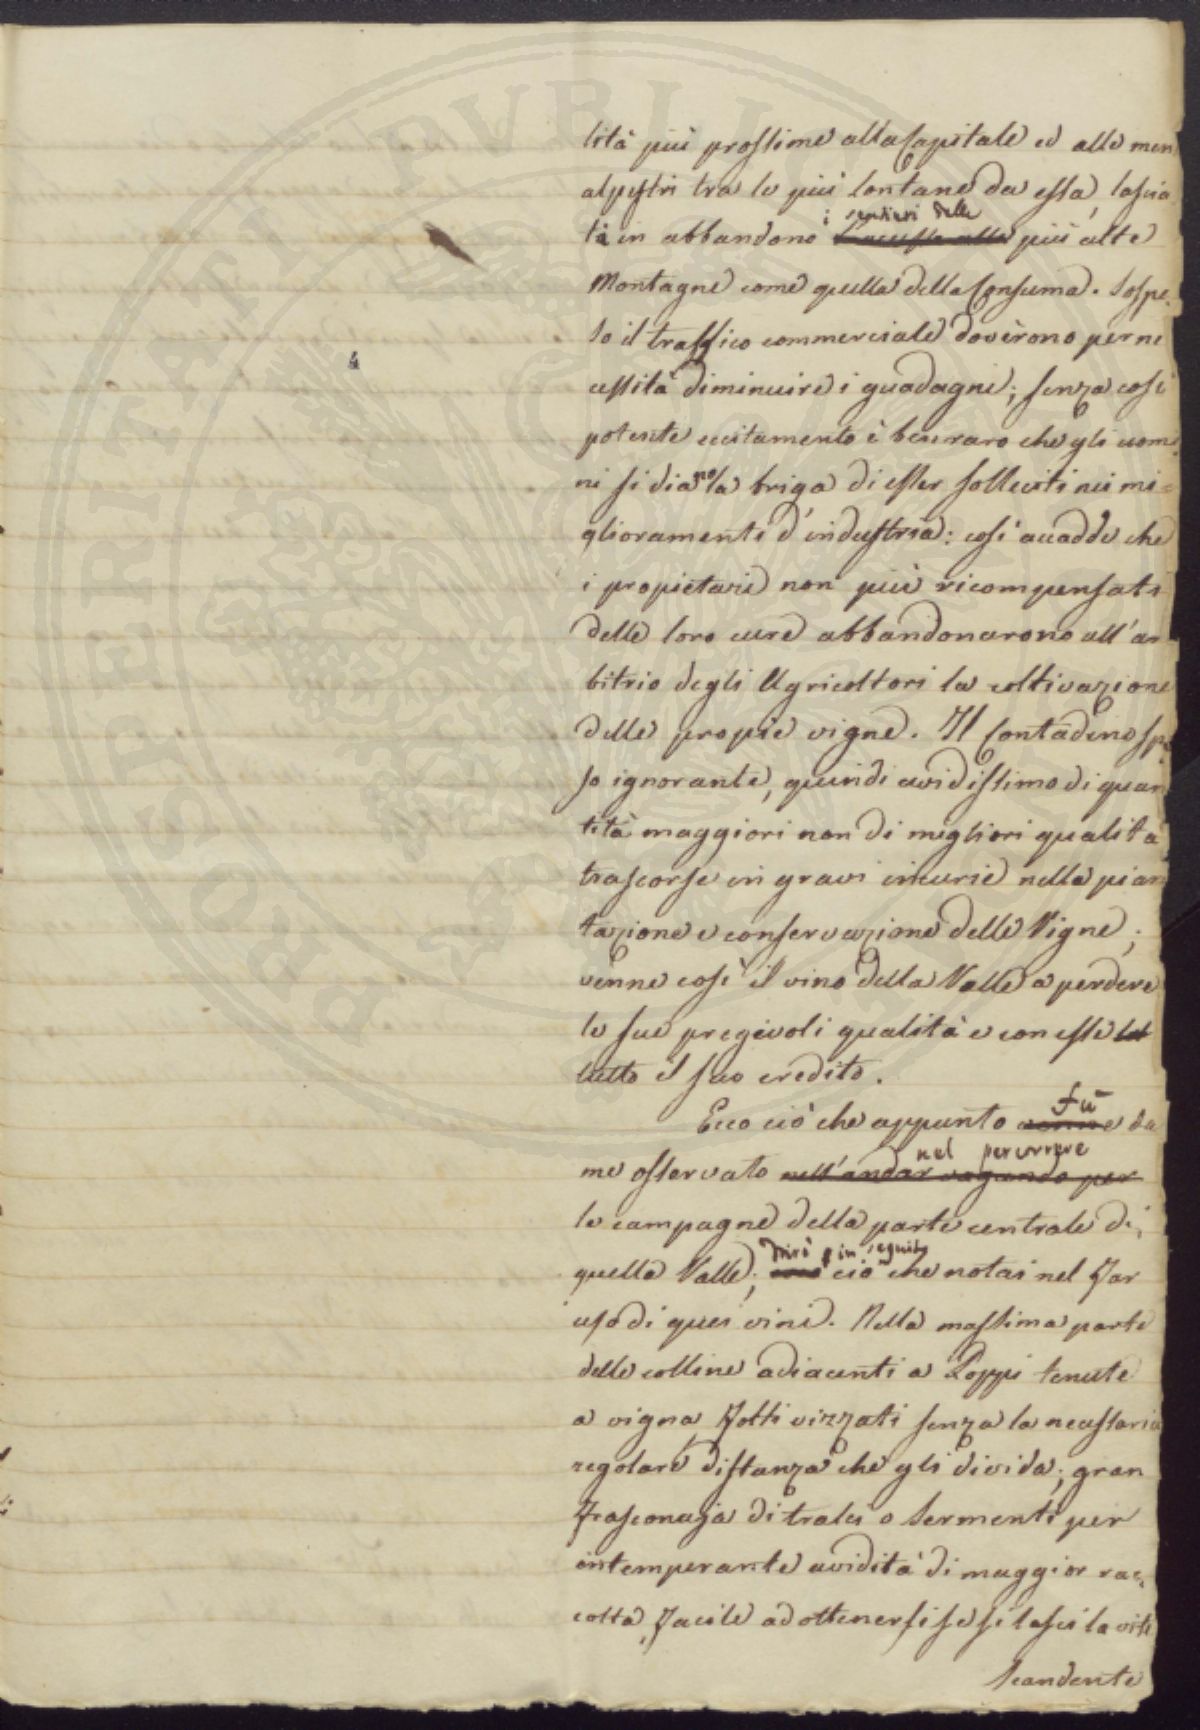 lità più prossime alla Capitale ed alle men
alpestri tra le più lontane da essa, lascia
ti in abbandono i sentieri delle più alte
Montagne come quella della Consuma. Sospe
so il traffico commerciale doverono per ne
cessità diminuire i guadagni; senza così
potente eccitamento è ben raro che gli uomi
ni si diano la briga di esser solleciti nei mi=
glioramenti d'industria: così accadde che
i propietarii non più ricompensati
delle loro cure abbandonarono all'ar
bitrio degli Agricoltori la coltivazione
delle propie vigne. Il Contadino spe
so ignorante, quindi avidissimo di quan
tità maggiori non di migliori qualità
trascorse in gravi incurie nella pian
tazione e conservazione delle Vigne;
venne così il vino della Valle a perdere
le sue pregievoli qualità e con esse
tutto il suo credito.
Ecco ciò che appunto fù da
me osservato nel percorrere
le campagne della parte centrale di
quella Valle; dirò in seguito ciò che notai nel far
uso di quei vini. Nella massima parte
delle colline adiacenti a Poppi tenute
a vigna, folti vizzati senza la necessaria
regolare distanza che gli divida; gran
frasconaja di tralci o sermenti per
intemperante avidità di maggior rac
colta, facile ad ottenersi se si lasci la vite
Scandente
4
PROSPERITATI PUBLICAE